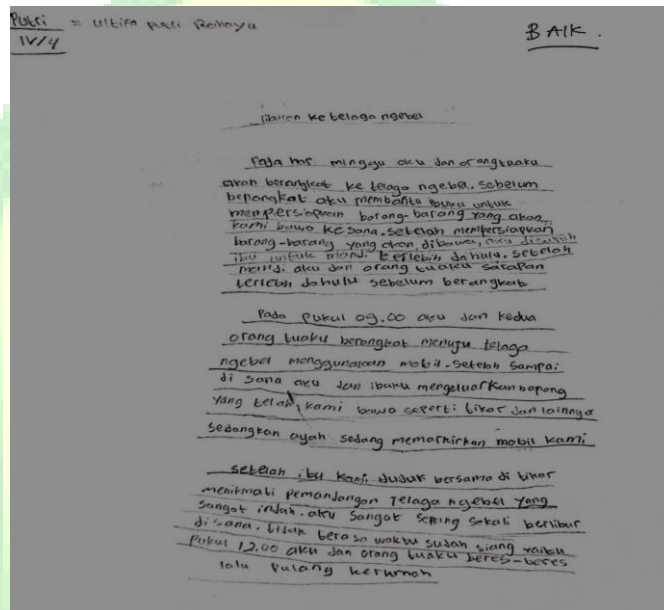 Putri = Ultifa Putri Rahayu
IV/4
BAIK.
liburan ke telaga ngebel
Pada hari minggu aku dan orangtuaku
akan berangkat ke telaga ngebel. sebelum
berangkat aku membantu ibuku untuk
mempersiapkan barang-barang yang akan
kami bawa kesana. setelah mempersiapkan
barang-barang yang akan dibawa, aku disuruh
ibu untuk mandi terlebih dahulu, setelah
mandi aku dan orang tuaku sarapan
terlebih dahulu sebelum berangkat
Pada pukul 09.00 aku dan kedua
orang tuaku berangkat menuju telaga
ngebel menggunakan mobil. setelah sampai
di sana aku dan ibuku mengeluarkan
yang telah kami bawa seperti: tikar dan lainnya
sedangkan ayah sedang memarkirkan mobil kami
setelah itu kami duduk bersama di tikar
menikmati pemandangan Telaga ngebel yang
sangat indah. aku sangat sekali berlibur
disana. tidak berasa waktu sudah siang yaitu
pukul 12.00 aku dan orang tuaku beres-beres
lalu pulang kerumah